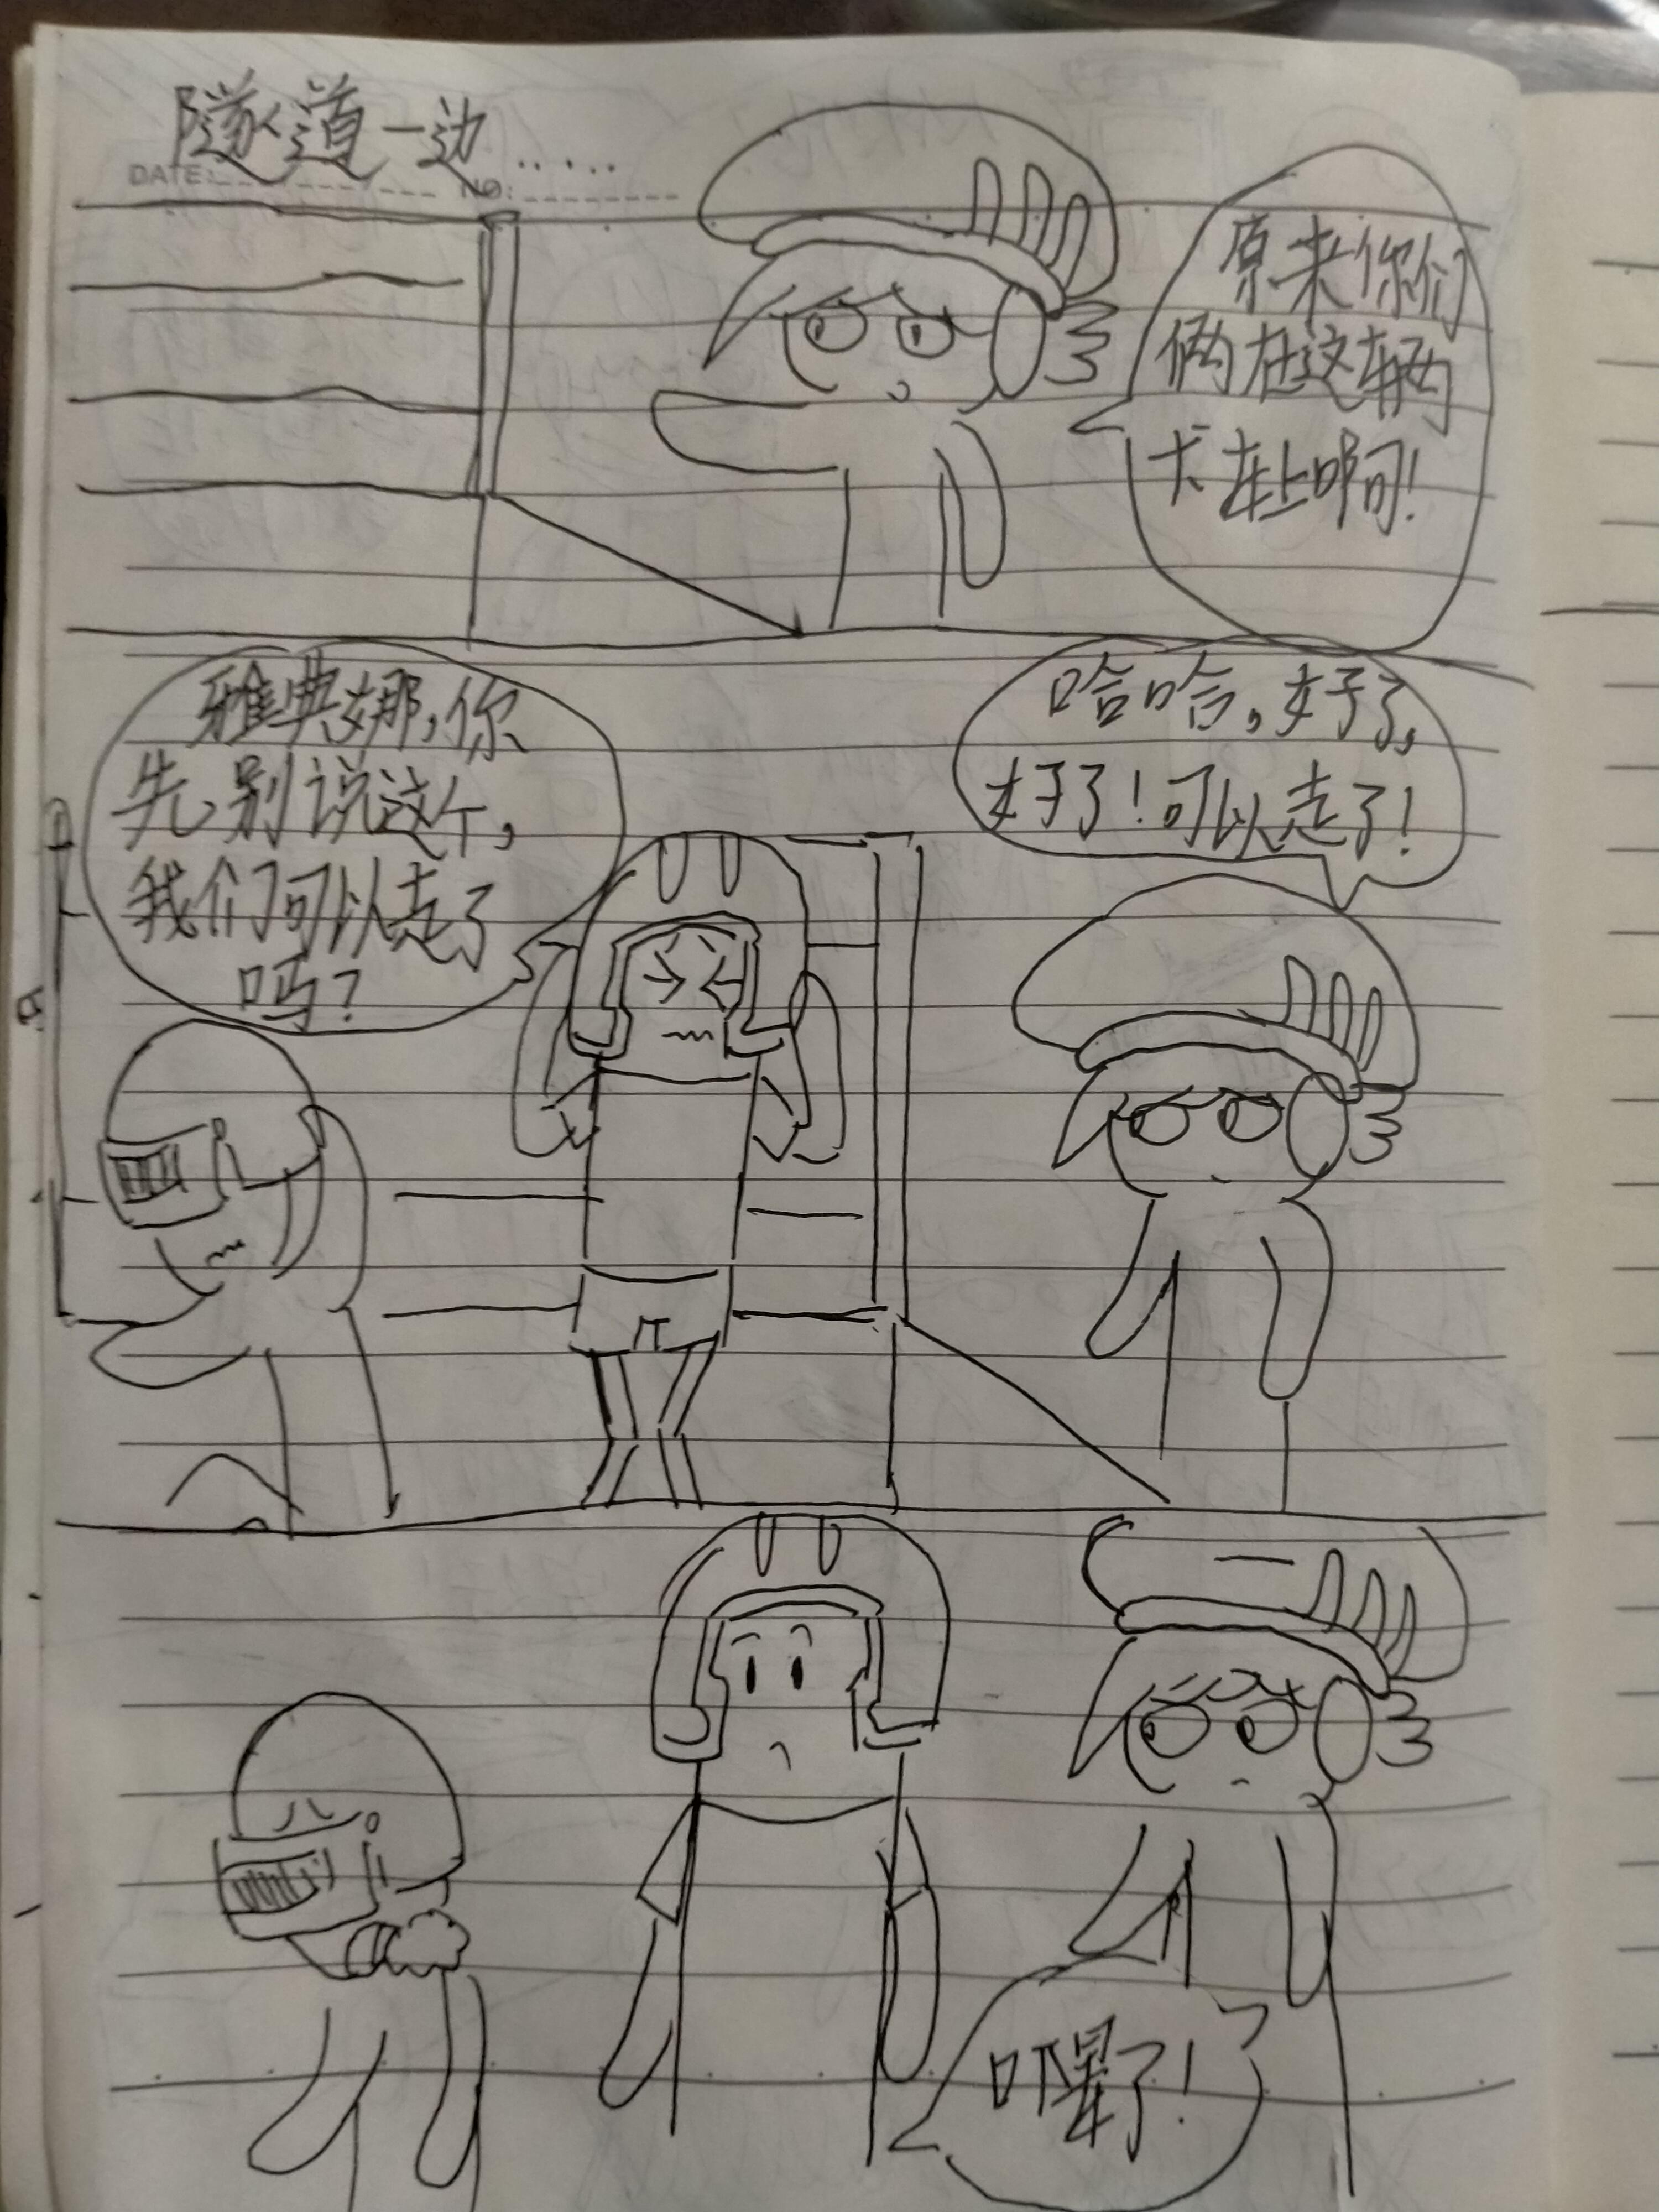 隧道一边......
DATE: NO:
原来你们
俩在这辆
卡车上啊!
雅典娜,你
先别说这个,
我们可以走了
吗?
哈哈,好了,
好了!可以走了!
吓晕了!